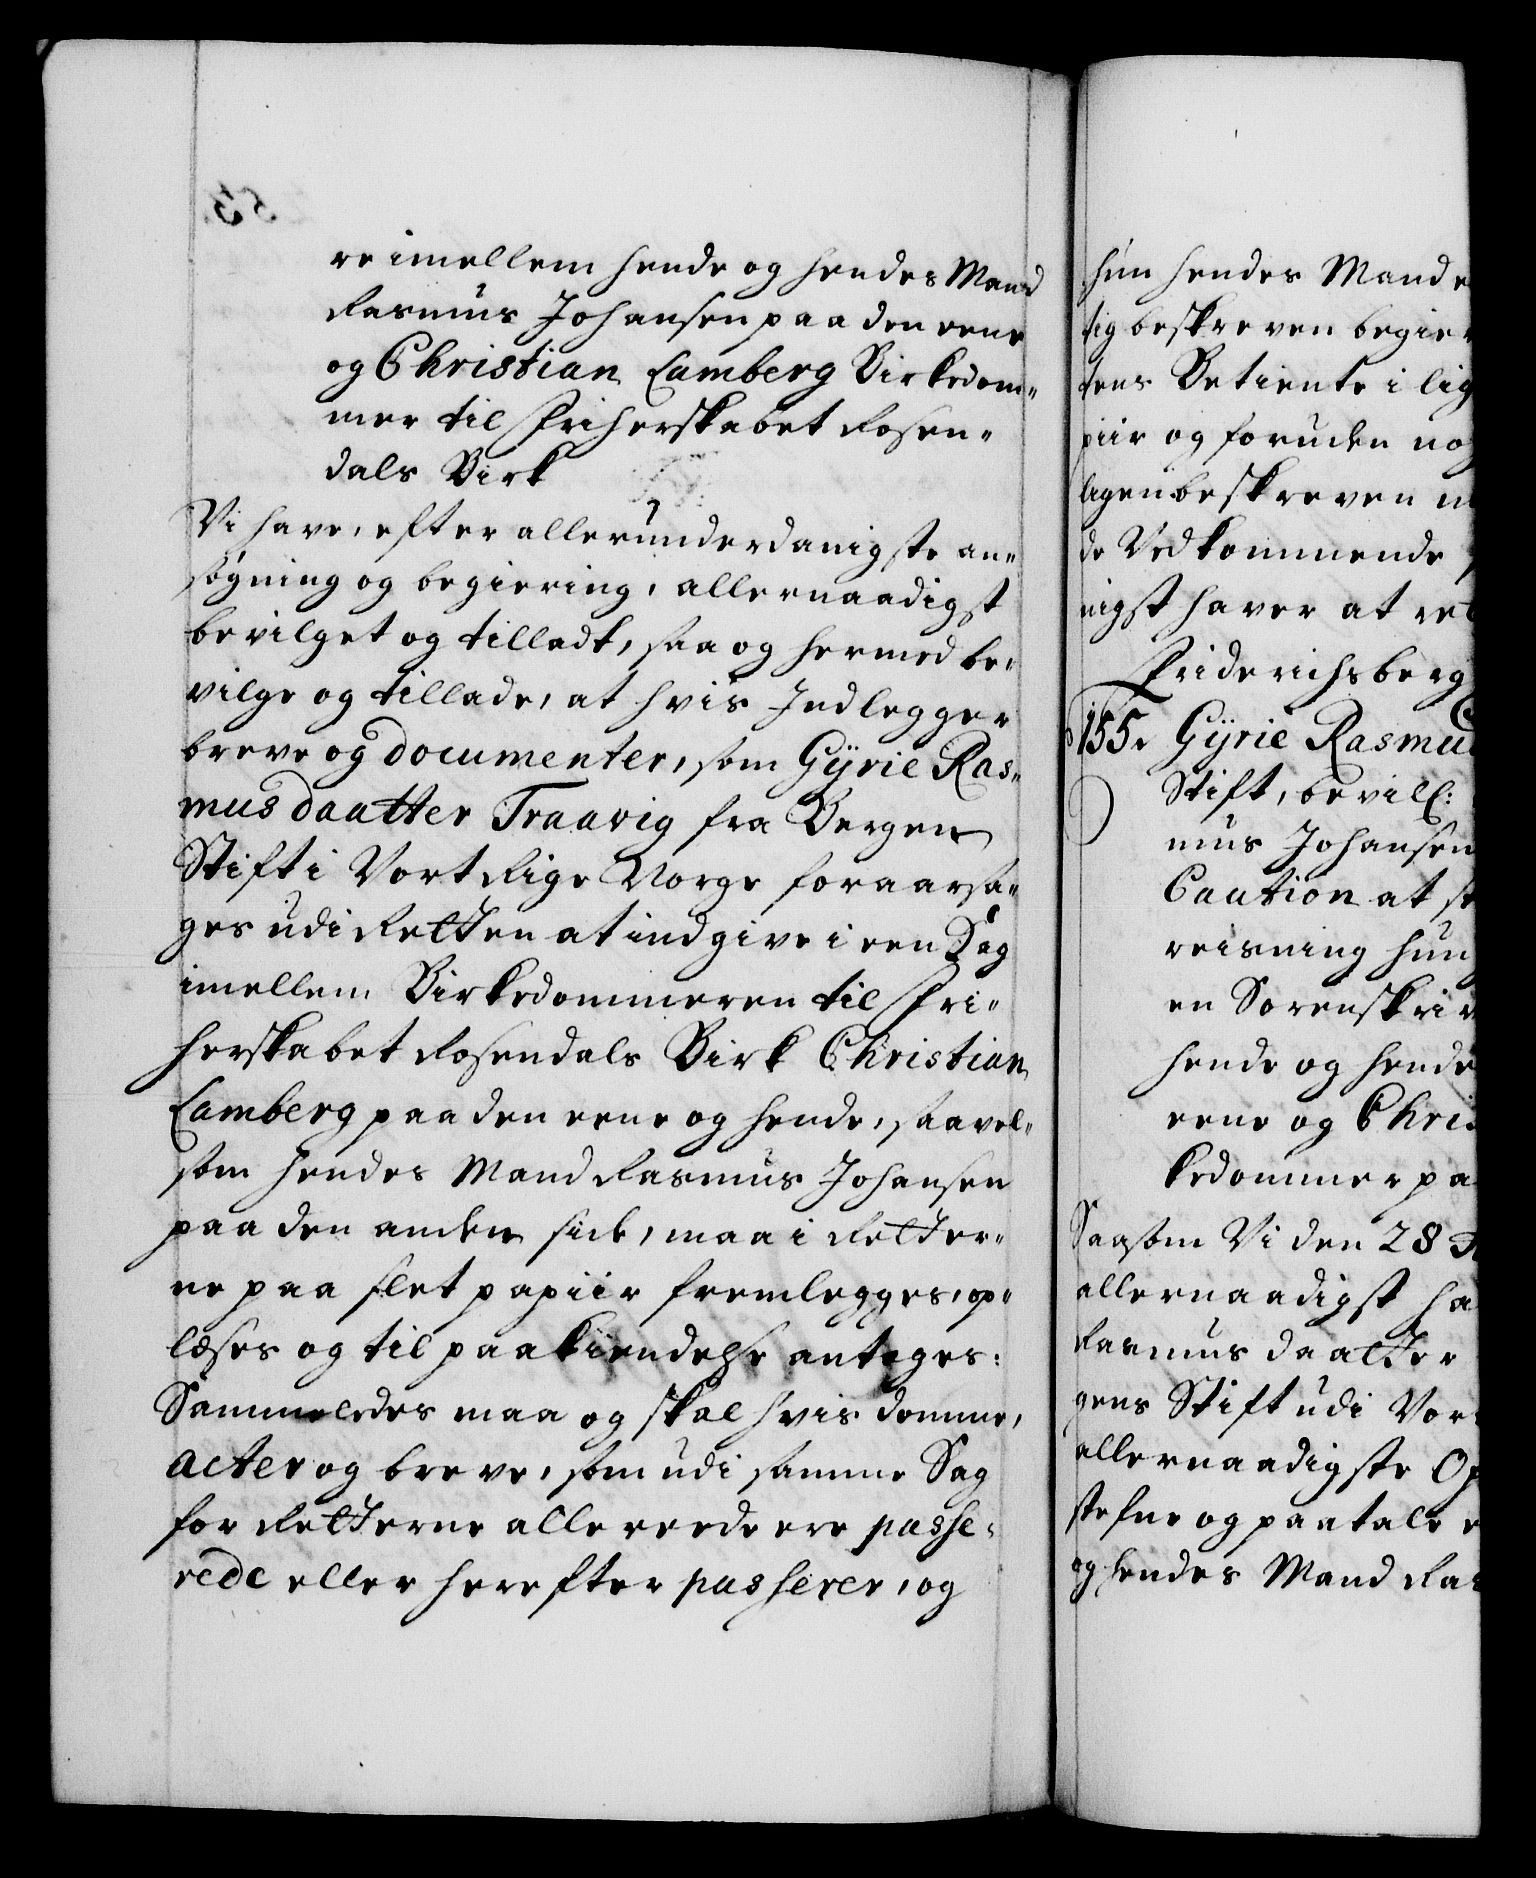 re imellem hende og hendes Mand
Rasmus Johansen paa den eene
og Christian Lamberg Birkedom-
mer til Friherskabet Rosen-
dals Birk
Vi have, efter allerunderdanigste an-
søgning og begiering, allernaadigst
bevilget og tilladt, saa og hermed be-
vilge og tillade, at hvis Indlegger
breve og documenter, som Gÿrie Ras-
mus daatter Traavig fra Bergens
Stift i Vort Rige Norge foraarsa-
ges udi Retten at indgive i een Sag
imellem Birkedommeren til Fri-
herskabet Rosendals Birk Christian
Lamberg paa den eene og hende, saavel-
som hendes Mand Rasmus Johansen
paa den anden side, maa i Retter-
ne paa slet papiir fremlegges, op-
læses og til paakiendelse antages:
Sammeledes maa og skal hvis domme,
acter og breve, som udi samme Sag
for Retterne allereede ere passe-
rede eller herefter passerer, og
hun hendes Mand e
tig beskreven begier
tens Betiente i lig
piir og foruden no
ligen beskreven m
de Vedkommende
nigst haver at ret
Friderichsberg
155. Gÿrie Rasmu
Stift, bevill:
mus Johansen
Caution at st
reisning hun
en Sorenskriv
hende og hende
eene og Chris
kedommer pa
Saasom Vi den 28
allernaadigst ha
Rasmus daatter
gens Stift udi Vor
allernaadigste Op
stefne og paatale e
og hendes Mand Ras